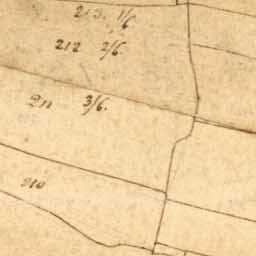 213. 1/6
212 2/6.
211 3/6.
210